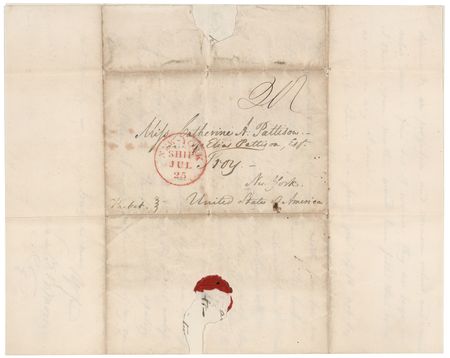 Miss Catherine A. Pattison
Elias Pattison, Esqr.
Troy
New York.
United States of America
NEW YORK
SHIP
JUL
25